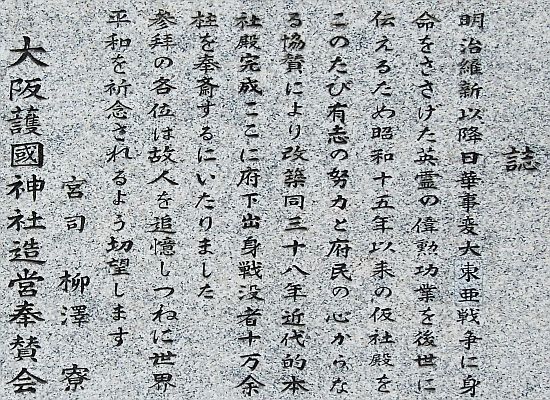 誌
明治維新以降日華事変大東亜戦争に身
命をささげた英霊の偉勲功業を後世に
伝えるため昭和十五年以来の仮社殿を
このたび有志の努力と府民の心からな
る協賛により改築同三十八年近代的本
社殿完成ここに府下出身戦没者十万余
柱を奉斎するにいたりました
参拝の各位は故人を追憶しつねに世界
平和を祈念されるよう切望します
宮司 柳澤 寮
大阪護國神社造営奉賛会